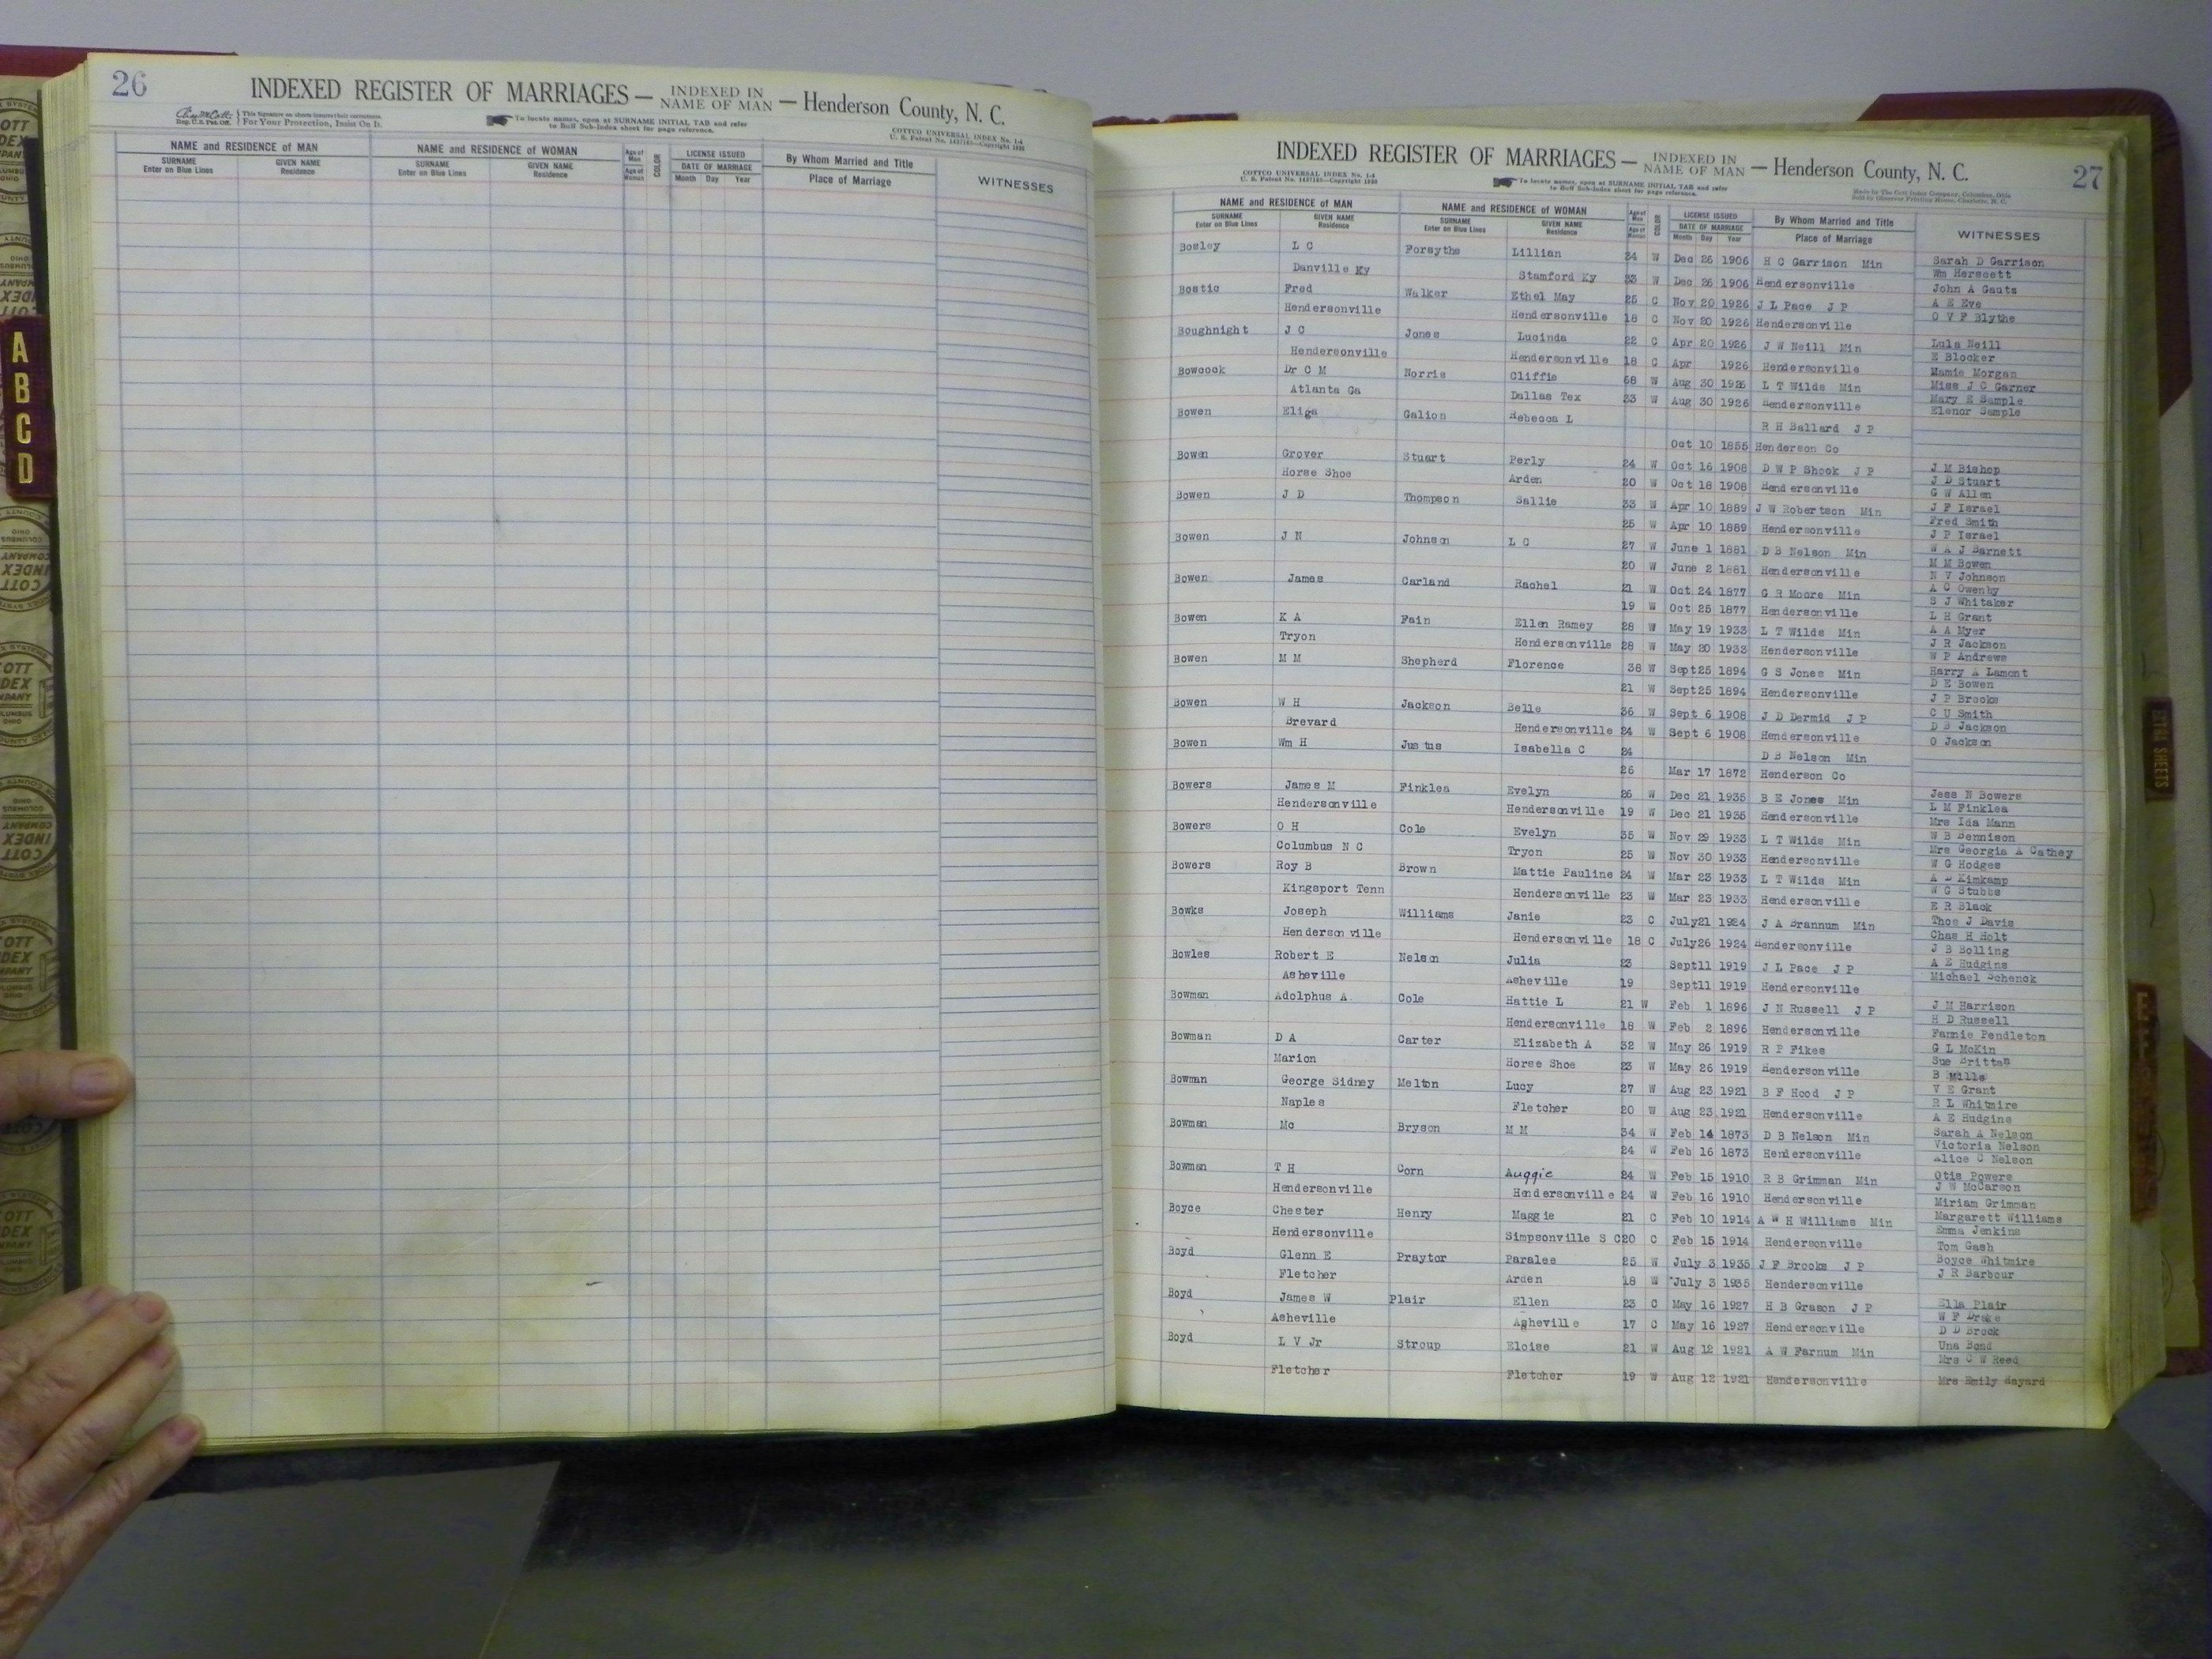 26
INDEXED REGISTER OF MARRIAGES — INDEXED IN NAME OF MAN — Henderson County, N. C.
This Signature on sheets insures their correctness. For Your Protection, Insist On It.
To locate names, open at SURNAME INITIAL TAB and refer to Buff Sub-Index sheet for page reference.
COTTCO UNIVERSAL INDEX No. 1-4
NAME and RESIDENCE of MAN NAME and RESIDENCE of WOMAN Age of Man Age of Woman COLOR LICENSE ISSUED DATE OF MARRIAGE By Whom Married and Title Place of Marriage WITNESSES
SURNAME Enter on Blue Lines GIVEN NAME Residence SURNAME Enter on Blue Lines GIVEN NAME Residence Month Day Year
A
B
C
D
INDEXED REGISTER OF MARRIAGES — INDEXED IN NAME OF MAN — Henderson County, N. C.
27
COTTCO UNIVERSAL INDEX No. 1-4
To locate names, open at SURNAME INITIAL TAB and refer to Buff Sub-Index sheet for page reference.
Made by The Cott Index Company, Columbus, Ohio
Sold by Observer Printing House, Charlotte, N. C.
NAME and RESIDENCE of MAN NAME and RESIDENCE of WOMAN Age of Man Age of Woman COLOR LICENSE ISSUED DATE OF MARRIAGE By Whom Married and Title Place of Marriage WITNESSES
SURNAME Enter on Blue Lines GIVEN NAME Residence SURNAME Enter on Blue Lines GIVEN NAME Residence Month Day Year
Bosley L C Forsythe Lillian 24 W Dec 26 1906 H C Garrison Min Sarah D Garrison
Danville Ky Stamford Ky 33 W Dec 26 1906 Hendersonville Wm Herscett
John A Gauts
Bostic Fred Walker Ethel May 25 C Nov 20 1926 J L Pace J P A E Eve
Hendersonville Hendersonville 18 C Nov 20 1926 Hendersonville O V F Blythe
Boughnight J C Jones Lucinda 22 C Apr 20 1926 J W Neill Min Lula Neill
Hendersonville Hendersonville 18 C Apr 1926 Hendersonville E Blocker
Mamie Morgan
Bowcock Dr C M Norris Cliffie 68 W Aug 30 1926 L T Wilds Min Miss J C Garner
Atlanta Ga Dallas Tex 33 W Aug 30 1926 Hendersonville Mary E Sample
Elenor Sample
Bowen Eliga Galion Rebecca L R H Ballard J P
Oct 10 1855 Henderson Co
Bowen Grover Stuart Perly 24 W Oct 16 1908 D W P Shook J P J M Bishop
Horse Shoe Arden 20 W Oct 18 1908 Hendersonville J D Stuart
G W Allen
Bowen J D Thompson Sallie 33 W Apr 10 1889 J W Robertson Min J F Israel
25 W Apr 10 1889 Hendersonville Fred Smith
J P Israel
Bowen J N Johnson L C 27 W June 1 1881 D B Nelson Min W A J Barnett
20 W June 2 1881 Hendersonville M M Bowen
N V Johnson
Bowen James Garland Rachel 21 W Oct 24 1877 G R Moore Min A C Owenby
19 W Oct 25 1877 Hendersonville S J Whitaker
L H Grant
Bowen K A Fain Ellen Ramey 28 W May 19 1933 L T Wilds Min A A Myer
Tryon Hendersonville 28 W May 20 1933 Hendersonville J R Jackson
W P Andrews
Bowen M M Shepherd Florence 38 W Sept 25 1894 G S Jones Min Harry A Lamont
21 W Sept 25 1894 Hendersonville D E Bowen
J P Brooks
Bowen W H Jackson Belle 36 W Sept 6 1908 J D Dermid J P C U Smith
Brevard Hendersonville 24 W Sept 6 1908 Hendersonville D B Jackson
O Jackson
Bowen Wm H Justus Isabella C 24 D B Nelson Min
26 Mar 17 1872 Henderson Co
Bowers James M Finklea Evelyn 26 W Dec 21 1935 B E Jones Min Jess N Bowers
Hendersonville Hendersonville 19 W Dec 21 1935 Hendersonville L M Finklea
Mrs Ida Mann
Bowers O H Cole Evelyn 35 W Nov 29 1933 L T Wilds Min W B Bennison
Columbus N C Tryon 25 W Nov 30 1933 Hendersonville Mrs Georgia A Cathey
W G Hodges
Bowers Roy B Brown Mattie Pauline 24 W Mar 23 1933 L T Wilds Min A D Kimkamp
Kingsport Tenn Hendersonville 23 W Mar 23 1933 Hendersonville W G Stubbs
E R Black
Bowks Joseph Williams Janie 23 C July 21 1924 J A Brannum Min Thos J Davis
Hendersonville Hendersonville 18 C July 26 1924 Hendersonville Chas H Holt
J B Bolling
Bowles Robert E Nelson Julia 23 Sept 11 1919 J L Pace J P A E Hudgins
Asheville Asheville 19 Sept 11 1919 Hendersonville Michael Schenck
Bowman Adolphus A Cole Hattie L 21 W Feb 1 1896 J N Russell J P J M Harrison
Hendersonville 18 W Feb 2 1896 Hendersonville H D Russell
Fannie Pendleton
Bowman D A Carter Elizabeth A 32 W May 26 1919 R P Fikes G L McKin
Marion Horse Shoe 23 W May 26 1919 Hendersonville Sue Brittan
B Mills
Bowman George Sidney Melton Lucy 27 W Aug 23 1921 B F Hood J P V E Grant
Naples Fletcher 20 W Aug 23 1921 Hendersonville R L Whitmire
A E Hudgins
Bowman Mc Bryson M M 34 W Feb 14 1873 D B Nelson Min Sarah A Nelson
24 W Feb 16 1873 Hendersonville Victoria Nelson
Alice C Nelson
Bowman T H Corn Auggie 24 W Feb 15 1910 R B Grimman Min Otis Powers
Hendersonville Hendersonville 24 W Feb 16 1910 Hendersonville J W McCarson
Miriam Grimman
Boyce Chester Henry Maggie 21 C Feb 10 1914 A W H Williams Min Margarett Williams
Hendersonville Simpsonville S C 20 C Feb 15 1914 Hendersonville Emma Jenkins
Tom Gash
Boyd Glenn E Praytor Paralee 25 W July 3 1935 J F Brooks J P Boyce Whitmire
Fletcher Arden 18 W July 3 1935 Hendersonville J R Barbour
Boyd James W Plair Ellen 23 C May 16 1927 H B Grason J P Ella Plair
Asheville Asheville 17 C May 16 1927 Hendersonville W F Drake
D D Brock
Boyd L V Jr Stroup Eloise 21 W Aug 12 1921 A W Farnum Min Una Bond
Mrs C W Reed
Fletcher Fletcher 19 W Aug 12 1921 Hendersonville Mrs Emily Hayard
EXTRA SHEETS